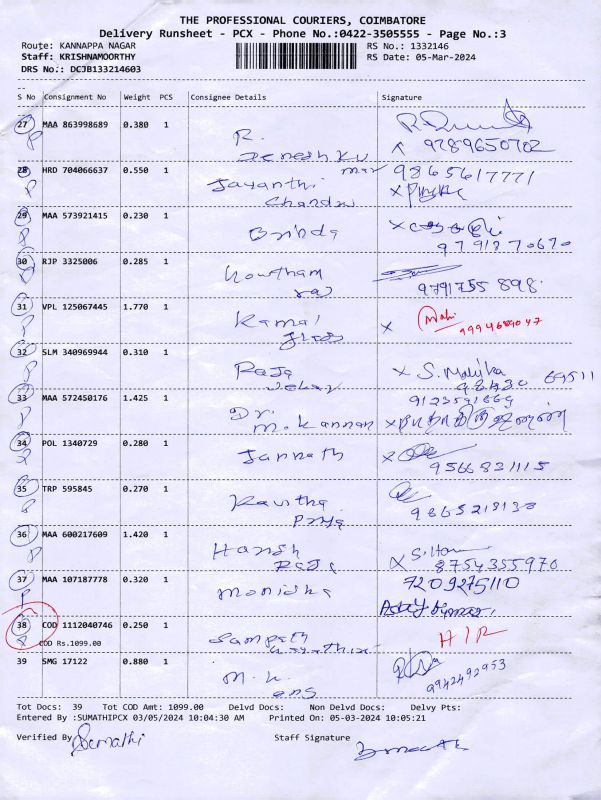 THE PROFESSIONAL COURIERS, COIMBATORE
Delivery Runsheet - PCX - Phone No.:0422-3505555 - Page No.:3
Route: KANNAPPA NAGAR RS No.: 1332146
Staff: KRISHNAMOORTHY RS Date: 05-Mar-2024
DRS No.: DCJB133214603
S No Consignment No Weight PCS Consignee Details Signature
27 MAA 863998689 0.380 1 R.
Denesh Ku 9789650702
mar
28 HRD 704066637 0.550 1 Jayanthi 9865617771
29 MAA 573921415 0.230 1 Brinda
30 RJP 3325006 0.285 1 Gowtham
raj 9791755 898
31 VPL 125067445 1.770 1 Kamal Mahi
32 SLM 340969944 0.310 1 Raja x S. Mallika
Sekar 98430 69511
33 MAA 572450176 1.425 1 Dr.
M. Kannan
34 POL 1340729 0.280 1 Jannath
9566831115
35 TRP 595845 0.270 1 Kavitha
Priya
36 MAA 600217609 1.420 1 Harish
Raja 8754355970
37 MAA 107187778 0.320 1 Monisha 7209275110
38 COD 1112040746 0.250 1 Sampath
COD Rs.1099.00
39 SMG 17122 0.880 1 M. K.
ens 9942492953
Tot Docs: 39 Tot COD Amt: 1099.00 Delvd Docs: Non Delvd Docs: Delvy Pts:
Entered By :SUMATHIPCX 03/05/2024 10:04:30 AM Printed On: 05-03-2024 10:05:21
Verified By Sumathi Staff Signature